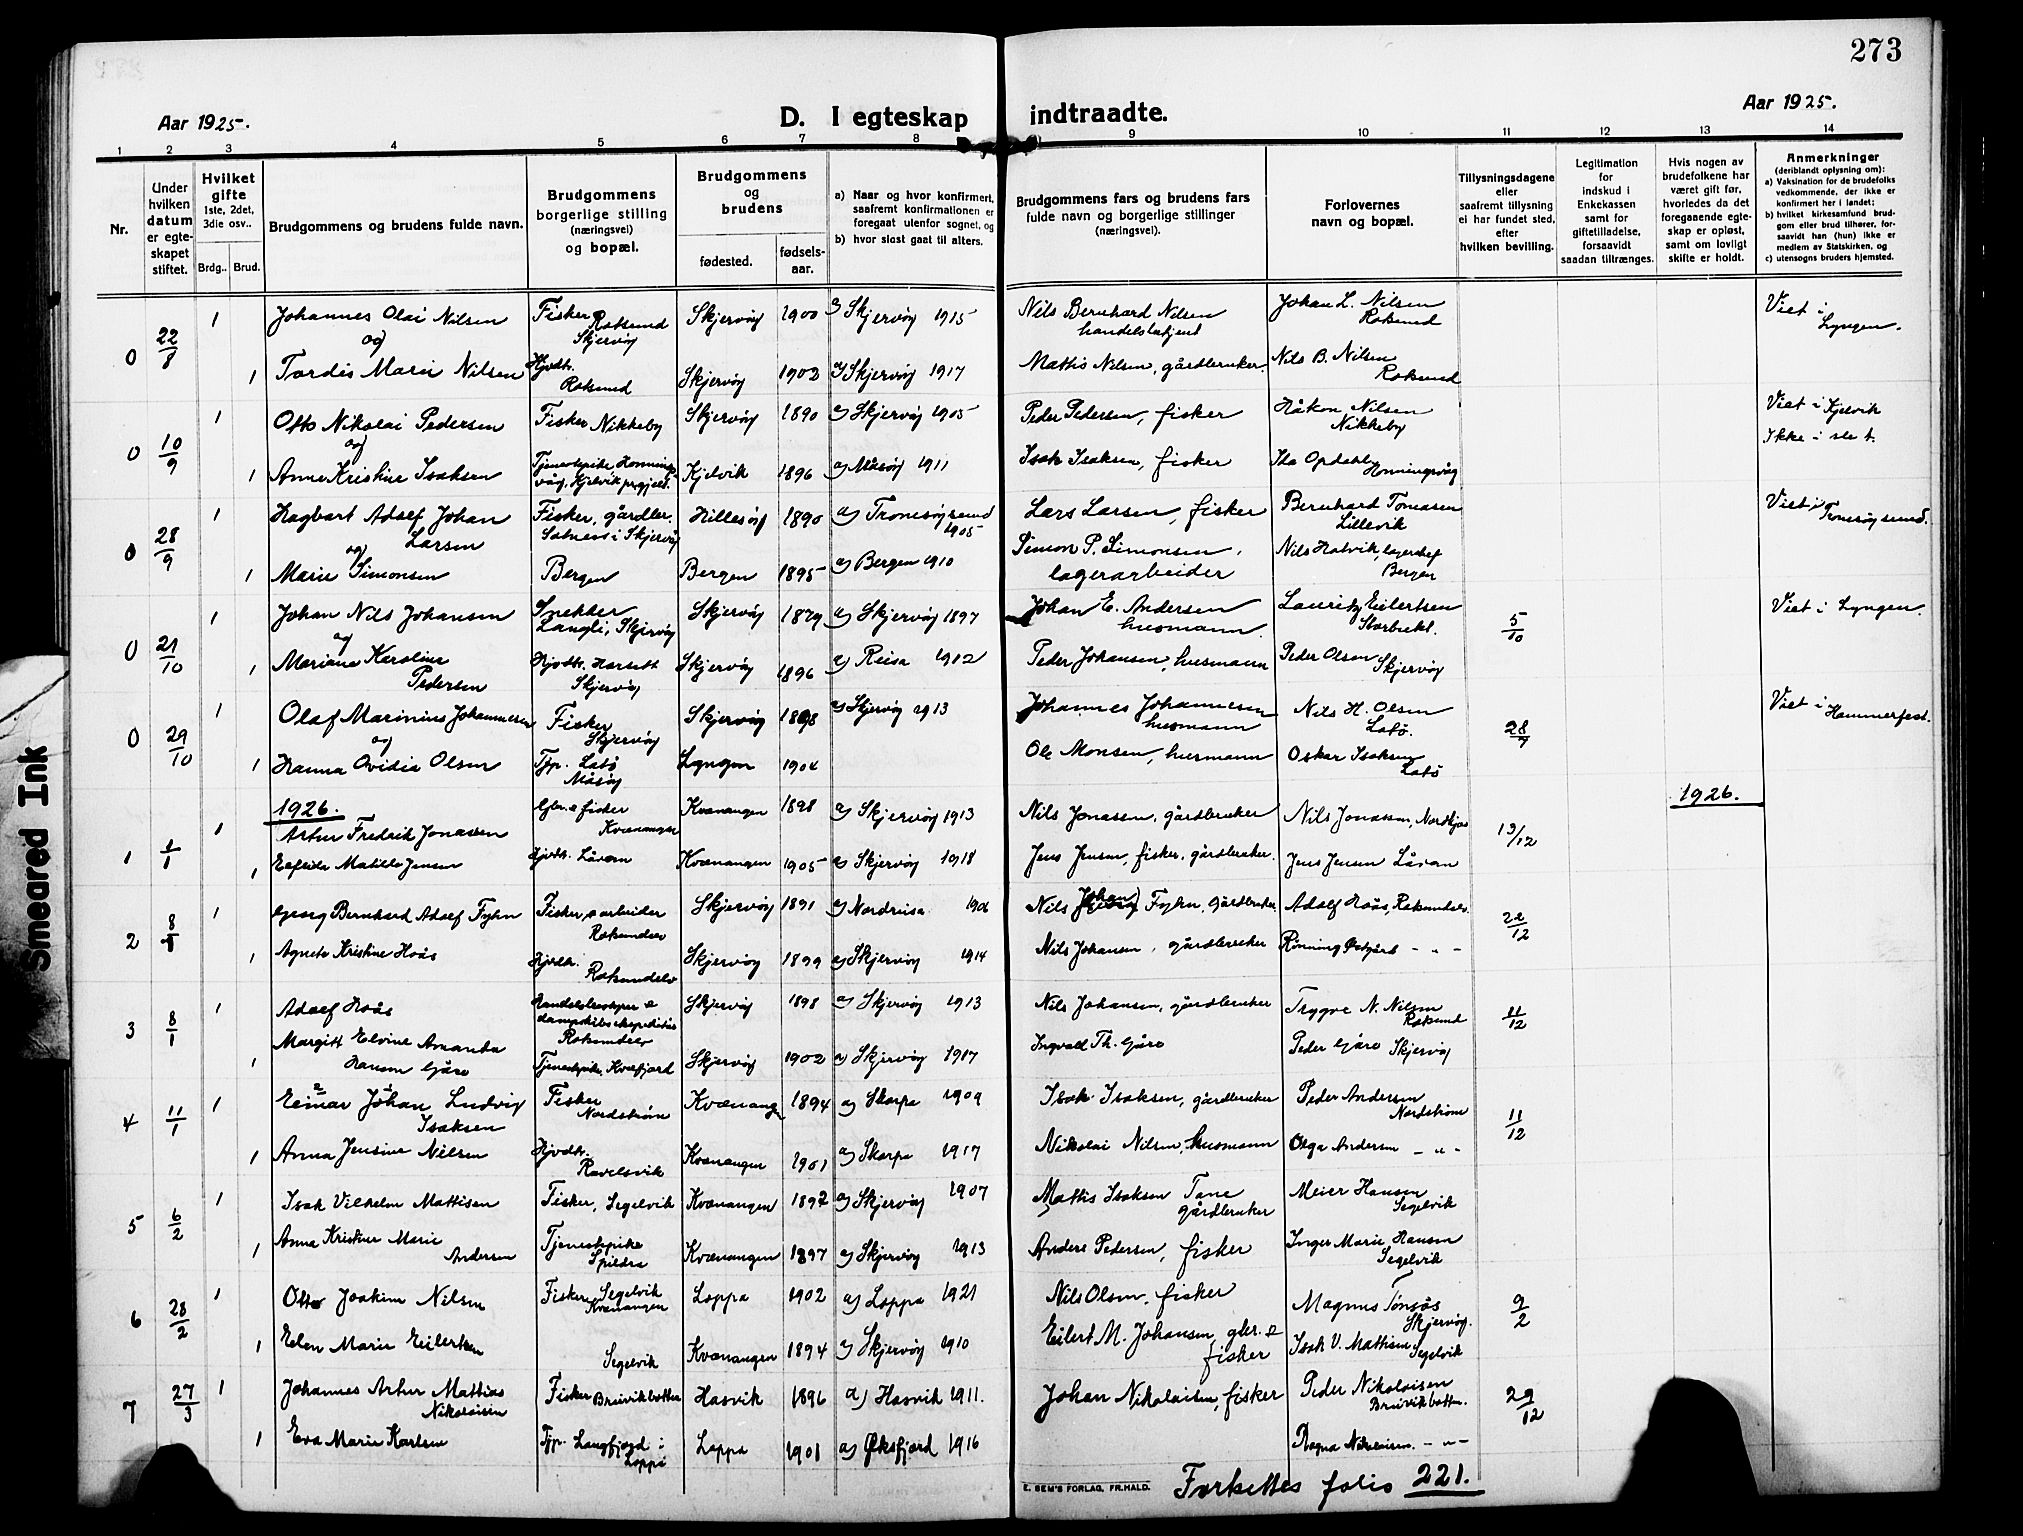 273
Aar 1925.
D. I egteskap indtraadte.
Aar 1925.
1 2 3 4 5 6 7 8 9 10 11 12 13 14
Nr.
Under hvilken datum er egteskapet stiftet.
Hvilket gifte
1ste, 2det, 3die osv..
Brdg.. Brud.
Brudgommens og brudens fulde navn.
Brudgommens borgerlige stilling (næringsvei) og bopæl.
Brudgommens og brudens
fødested.
fødsels-aar.
a) Naar og hvor konfirmert, saafremt konfirmationen er foregaat utenfor sognet, og
b) hvor sidst gaat til alters.
Brudgommens fars og brudens fars fulde navn og borgerlige stillinger (næringsvei).
Forlovernes navn og bopæl.
Tillysningsdagene eller saafremt tillysning ei har fundet sted, efter hvilken bevilling.
Legitimation for indskud i Enkekassen samt for giftetilladelse, forsaavidt saadan tiltrænges.
Hvis nogen av brudefolkene har været gift før, hvorledes da det foregaaende egteskap er opløst, samt om lovligt skifte er holdt.
Anmerkninger
(deriblandt oplysning om):
a) Vaksination for de brudefolks vedkommende, der ikke er konfirmert her i landet;
b) hvilket kirkesamfund brudgom eller brud tilhører, forsaavidt han (hun) ikke er medlem av Statskirken, og
c) utensogns bruders hjemsted.
0 22/8 1 Johannes Olai Nilsen Fisker Roksund Skjervøy Skjervøy 1900 a) Skjervøy 1915 Nils Bernhard Nilsen handelsbetjent Johan L. Nilsen Roksund Viet i Lyngen.
og
1 Tordis Marie Nilsen Hjvdtr. Roksund Skjervøy 1902 a) Skjervøy 1917 Mathis Nilsen, gårdbruker. Nils B. Nilsen Roksund
0 10/9 1 Otto Nikolai Pedersen Fisker Nikkeby Skjervøy 1890 a) Skjervøy 1905 Peder Pedersen, fisker Håkon Nilsen Nikkeby Viet i Kjelvik
og Ikke i slekt.
1 Anna Kristine Isaksen Tjenestepike, Honningsvåg, Kjelvik prgjeld. Kjelvik 1896 a) Måsøy 1911 Isak Isaksen, fisker Ida Opdahl Honningsvåg
0 28/9 1 Hagbart Adolf Johan Larsen Fisker, gårdbr. i Skjervøy Hillesøy 1890 a) Tromsøysund 1905 Lars Larsen, fisker Bernhard Tomasen Lillevik Viet i Tromsøysund.
og
1 Marie Simonsen Bergen Bergen 1895 a) Bergen 1910 Simon P. Simonsen, lagerarbeider Nils Hatvik, lagerchef Bergen
0 21/10 1 Johan Nils Johansen Snekker Langli, Skjervøy Skjervøy 1879 a) Skjervøy 1897 Johan E. Andersen husmann. Lauritz Eilertsen Storbukt. 5/10 Viet i Lyngen.
og
1 Mariane Karoline Pedersen Hjvdtr. Skjervøy Skjervøy 1896 a) Reisa 1912 Peder Johansen, husmann Peder Olsen Skjervøy
0 29/10 1 Olaf Marinius Johannesen Fisker Skjervøy Skjervøy 1898 a) Skjervøy 1913 Johannes Johannesen husmann Nils H. Olsen Latø. 28/7 Viet i Hammerfest.
og
1 Hanna Ovidia Olsen Tjp. Latø Måsøy Lyngen 1904 Ole Monsen, husmann Oskar Isaksen Latø
1926. 1926.
1 1/1 1 Artur Fredrik Jonassen Gbr. & fisker Kvænangen Kvænangen 1898 a) Skjervøy 1913 Nils Jonassen, gårdbruker Nils Jonassen, 13/12
1 Matilde Jensen Hjvdtr. Låvan Kvænangen 1905 a) Skjervøy 1918 Jens Jensen, fisker, gårdbruker. Jens Jensen Låvan
2 8/1 1 Georg Bernhard Adolf Fyhn Fisker, & arbeider Skjervøy 1891 a) Nordreisa Nils Johan Fyhn, gårdbruker Adolf Hoås, 22/12
1 Agnete Kristine Hoås Hjvdtr. Skjervøy 1899 a) Skjervøy 1914 Nils Johansen, gårdbruker Rönning Østgård - „ -
3 8/1 1 Adolf Hoås & Skjervøy 1898 a) Skjervøy 1913 Nils Johansen, gårdbruker Trygve N. Nilsen Roksund 11/12
1 Margitt Elvine Amanda Hansen Gåre Tjenestepike, Kvæfjord Skjervøy 1902 a) Skjervøy 1917 Ingvald Th. Gåre Peder Gåre Skjervøy
4 11/1 1 Einar Johan Ludvig Isaksen Fisker Nordstrøm Kvænang 1894 a) Skorpa 1909 Isak Isaksen, gårdbruker Peder Andersen Nordstrøm 11/12
1 Anna Jensine Nilsen Hjvdtr. Ravelsvik Kvænangen 1901 a) Skorpa 1917 Nikolai Nilsen, husmann Olga Andersen - „ -
5 6/2 1 Isak Vilhelm Mattisen Fisker, Segelvik Kvænangen 1892 a) Skjervøy 1907 Mattis Isaksen Tane gårdbruker Meier Hansen Segelvik
1 Anna Kristine Marie Andersen Tjenestepike Spildra Kvænangen 1897 a) Skjervøy 1913 Anders Pedersen, fisker Inger Marie Hansen Segelvik
6 28/2 1 Otto Joakim Nilsen Fisker Segelvik Kvænangen Loppa 1902 a) Loppa 1921 Nils Olsen, fisker Magnus Tønsås Skjervøy. 9/2
1 Elen Marie Eilertsen Segelvik Kvænangen 1894 a) Skjervøy 1910 Eilert M. Johansen, gbr. & fisker Isak V. Mattisen Segelvik
7 27/3 1 Johannes Artur Mattias Nikolaisen Fisker Bruvikbotten Hasvik 1896 a) Hasvik 1911. Johan Nikolaisen, fisker Peder Nikolaisen Bruvikbotten. 29/12
1 Eva Marie Karlsen Tjp. Langfjord i Loppa Loppa 1901 a) Øksfjord 1916 Ragna Nikolaisen. - „ -
E. SEM'S FORLAG, FR.HALD.
Forsettes folio 221.
Smeared Ink